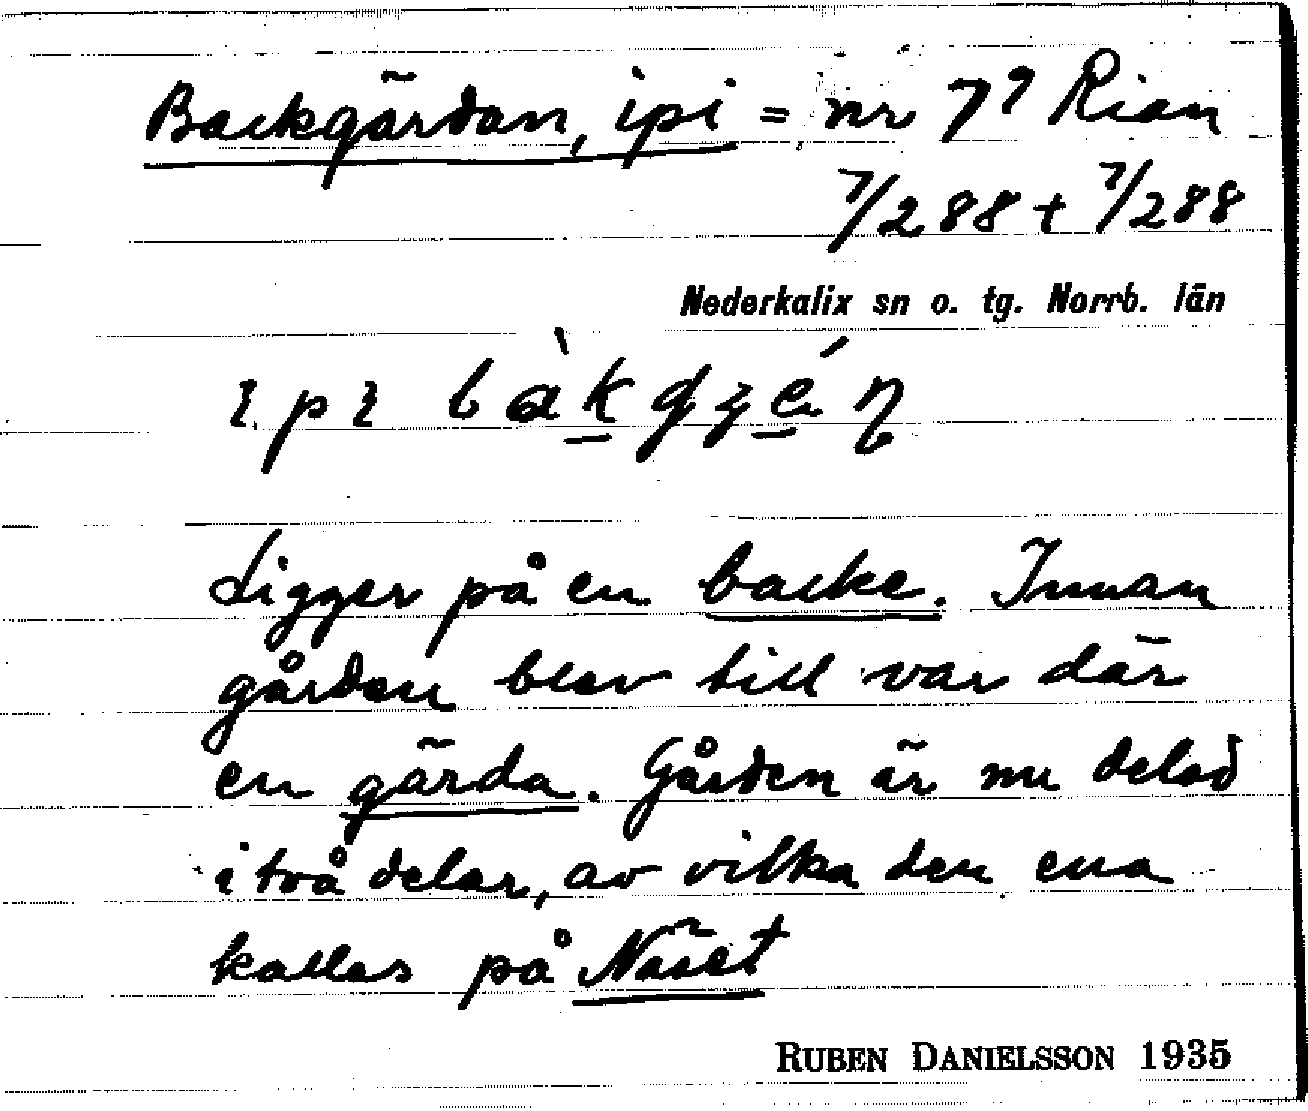 Backgärdan, ipi = nr 7⁹ Rian
7/288 + 7/288
Nederkalix sn o. tg. Norrb. län
ɩpɩ bàkgʒén
Ligger på en backe. Innan
gården blev till var där
en gärda. Gården är nu delad
i två delar, av vilka den ena
kallas på Näset
RUBEN DANIELSSON 1935